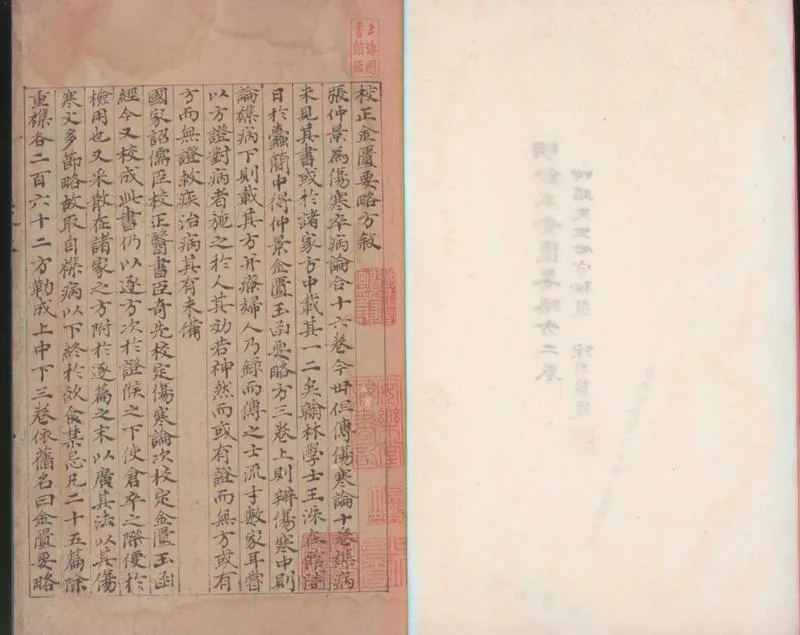 校正金匱要略方敘
張仲景為傷寒卒病論合十六卷今世但傳傷寒論十卷襍病
未見其書或於諸家方中載其一二矣翰林學士王洙在館閣
日於蠹簡中得仲景金匱玉函要略方三卷上則辯傷寒中則
論襍病下則載其方并療婦人乃錄而傳之士流才數家耳嘗
以方證對病者施之於人其効若神然而或有證而無方或有
方而無證救疾治病其有未備
國家詔儒臣校正醫書臣奇先校定傷寒論次校定金匱玉函
經今又校成此書仍以逐方次於證候之下使倉卒之際便於
檢用也又采散在諸家之方附於逐篇之末以廣其法以其傷
寒文多節略故取自襍病以下終於飲食禁忌凡二十五篇除
重複各二百六十二方勒成上中下三卷依舊名曰金匱要略
上海圖書館藏